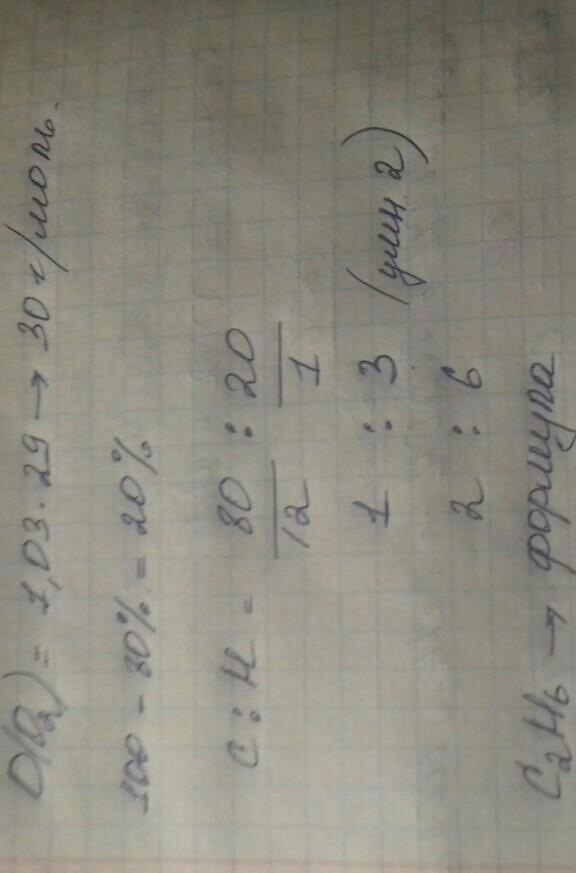 D(O₂) = 1,03 · 29 → 30 г/моль.
100 - 80% = 20%
C : H = 80/12 : 20/1
1 : 3 (умн. 2)
2 : 6
C₂H₆ → формула